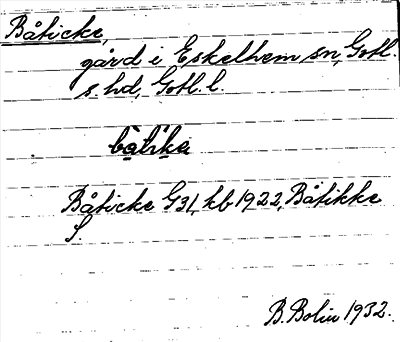 Båticke,
gård i Eskelhem sn, Gotl.
s. hd, Gotl. l.
båtika
Båticke G31, kb 1922, Båtikke
J.
B. Bolin 1932.